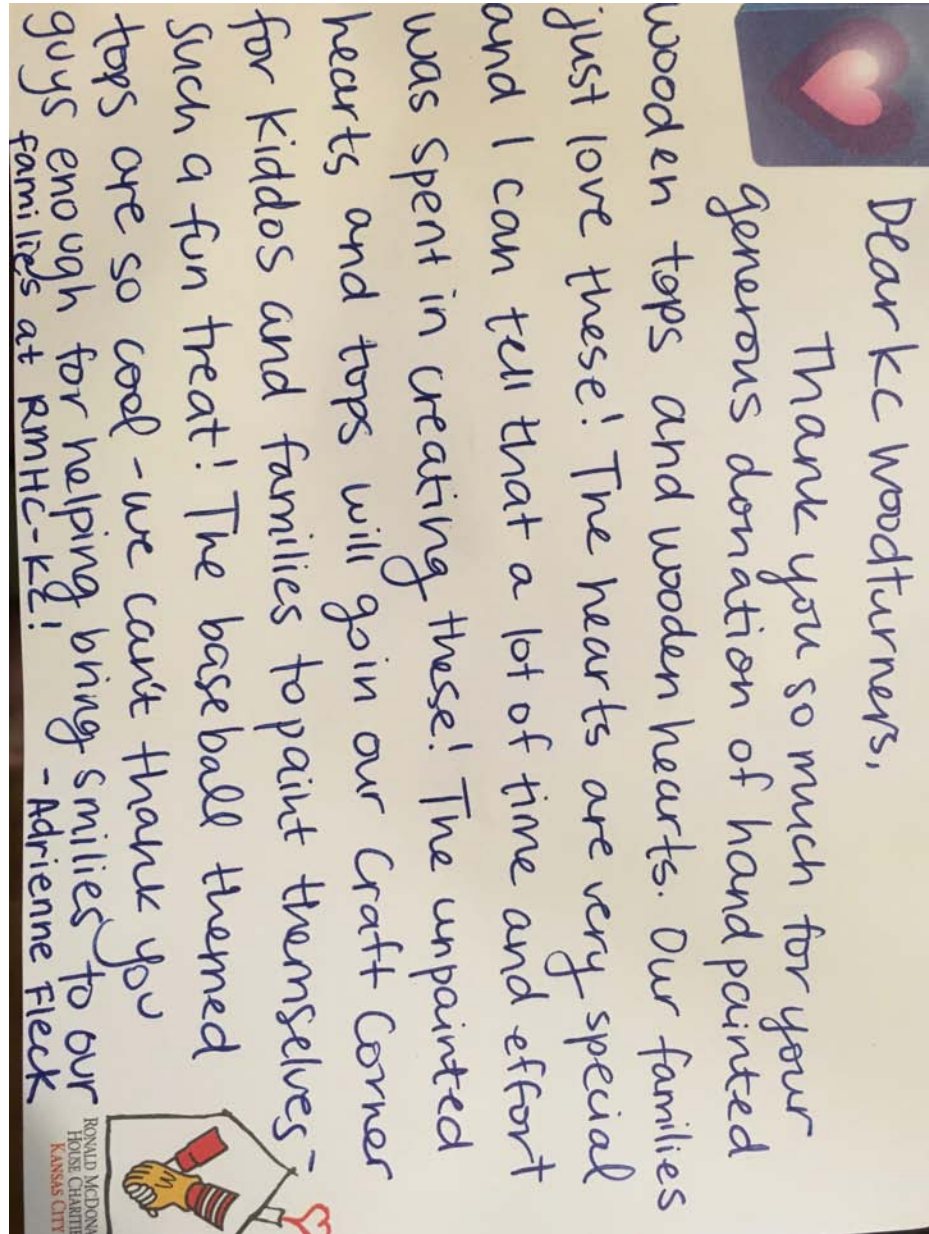 Dear KC Woodturners,
Thank you so much for your
generous donation of hand painted
wooden tops and wooden hearts. Our families
just love these! The hearts are very special
and I can tell that a lot of time and effort
was spent in creating these! The unpainted
hearts and tops will go in our Craft Corner
for kiddos and families to paint themselves -
such a fun treat! The baseball themed
tops are so cool - we can't thank you
guys enough for helping bring smilies to our
families at RMHC-KC!
- Adrienne Fleck
RONALD MCDONA
HOUSE CHARITIE
KANSAS CITY